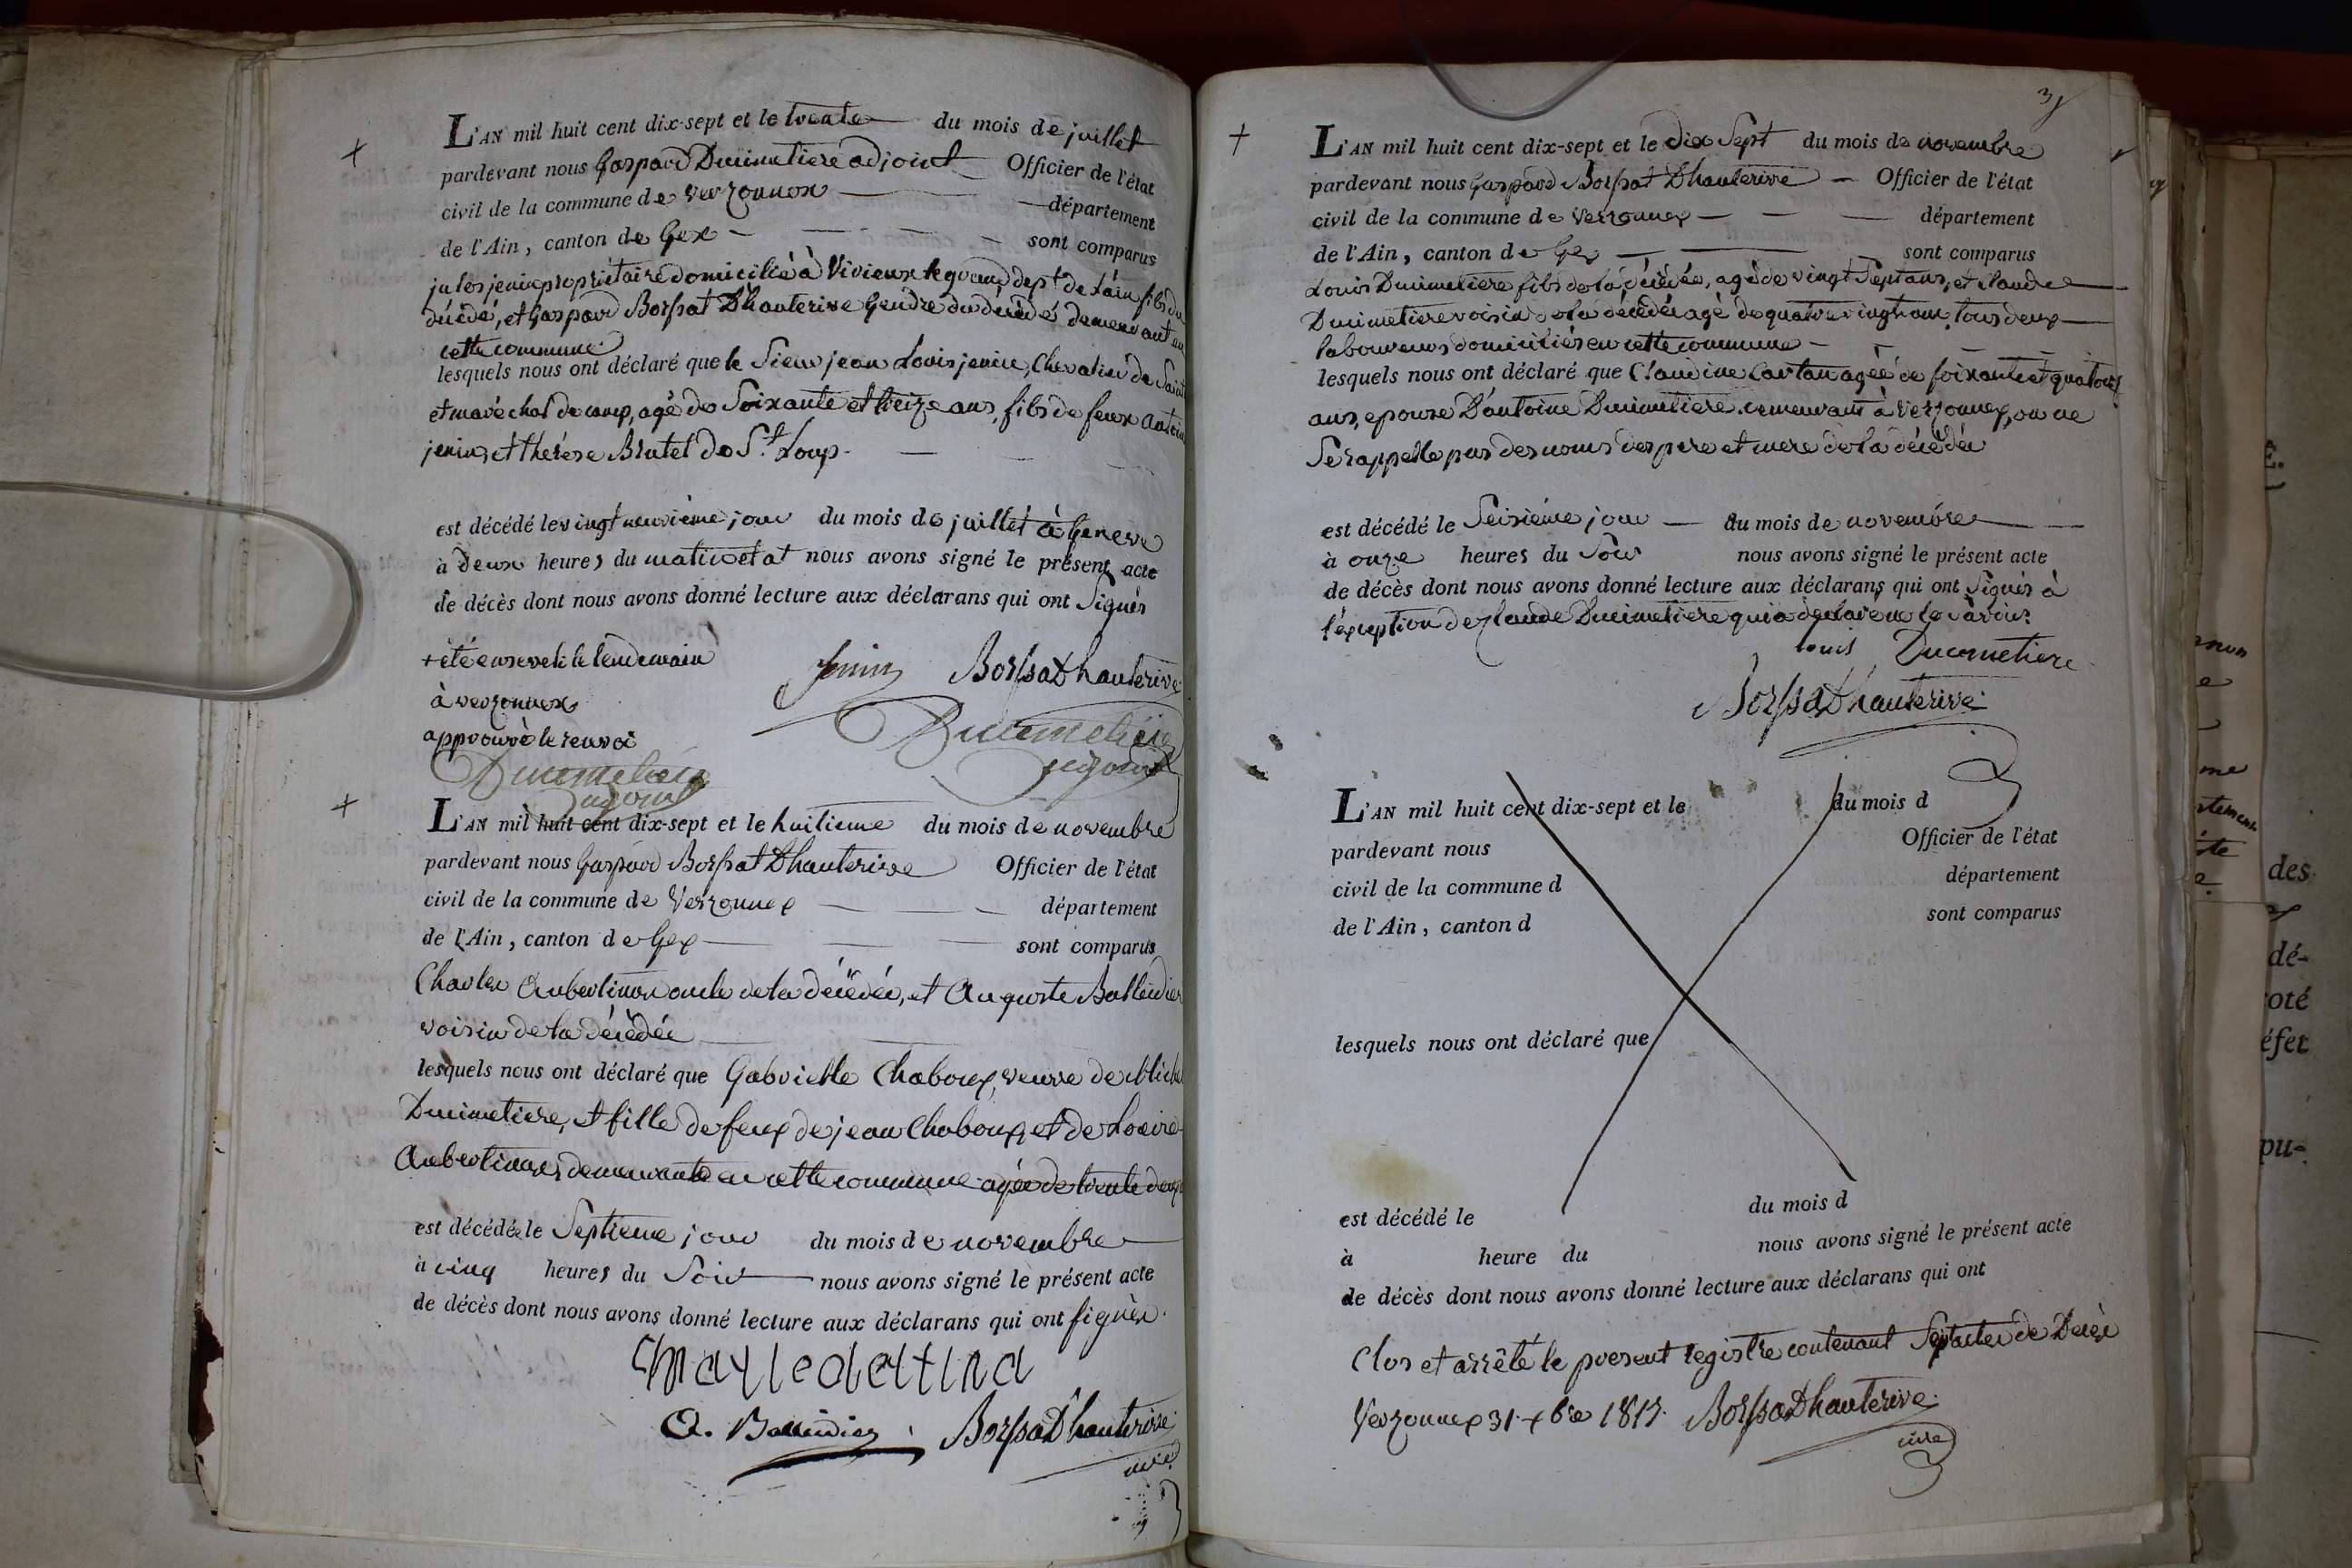 L'AN mil huit cent dix-sept et le trente du mois de juillet
pardevant nous Gaspard Ducimetiere adjoint Officier de l'état
civil de la commune de Verzonnex département
de l'Ain, canton de Gex sont comparus
jules jenin propriétaire domicilié à Virieux le grand dept de Lain fils du
décédé, et Gaspard Borssat Dhauterive Gendre du décédé demeurant en
cette commune
lesquels nous ont déclaré que le Sieur jean Louis jenin, Chevalier de Saint
et maréchal de camp, agé de Soixante et treize ans, fils de feux Antoine
jenin, et thérèse Brutel de St Loup.
est décédé le vingt neuvième jour du mois de juillet à Geneve
à deux heures du matin et at nous avons signé le présent acte
de décès dont nous avons donné lecture aux déclarans qui ont Signés
+ été enseveli le lendemain
à verzonnex
approuvé le renvoi
Ducimetiere
adjoint
Jenin Borssat Dhauterive
Ducimetiere
adjoint
L'AN mil huit cent dix-sept et le huitieme du mois de novembre
pardevant nous Gaspard Borssat Dhauterive Officier de l'état
civil de la commune de Verzonnex département
de l'Ain, canton de Gex sont comparus
Charles Aubertinon oncle de la décédée, et Auguste Balleidier
voisin de la décédée
lesquels nous ont déclaré que Gabrielle Chaboux, veuve de
Ducimetiere, et fille de feux de jean Chaboux, et de
demeurante en cette commune agée de trente deux
est décédée le Septieme jour du mois de novembre
à cinq heures du Soir nous avons signé le présent acte
de décès dont nous avons donné lecture aux déclarans qui ont signés.
A. Balleidier Borssat Dhauterive
mire
3
L'AN mil huit cent dix-sept et le dix Sept du mois de novembre
pardevant nous Gaspard Borssat Dhauterive Officier de l'état
civil de la commune de Verzonnex département
de l'Ain, canton de Gex sont comparus
Louis Ducimetiere fils de la décédée, agé de vingt Sept ans, et Claude
Ducimetiere voisin de la décédée agé de quatre vingt un tous deux
laboureurs domiciliés en cette commune
lesquels nous ont déclaré que Claudine Cartan agée de soixante et quatorze
ans, epouse D'antoine Ducimetiere demeurant à Verzonnex, on ne
Se rappelle pas des noms des pere et mere de la décédée
est décédé le Seisième jour du mois de novembre
à onze heures du Soir nous avons signé le présent acte
de décès dont nous avons donné lecture aux déclarans qui ont Signés à
l'exception de Claude Ducimetiere qui a déclaré ne le savoir
louis Ducometiere
Borssat Dhauterive
L'AN mil huit cent dix-sept et le du mois d
pardevant nous Officier de l'état
civil de la commune d département
de l'Ain, canton d sont comparus
lesquels nous ont déclaré que
est décédé le du mois d
à heure du nous avons signé le présent acte
de décès dont nous avons donné lecture aux déclarans qui ont
Clos et arrêté le present registre contenant Sept actes de Décès
Verzonnex 31 xbre 1817. Borssat Dhauterive